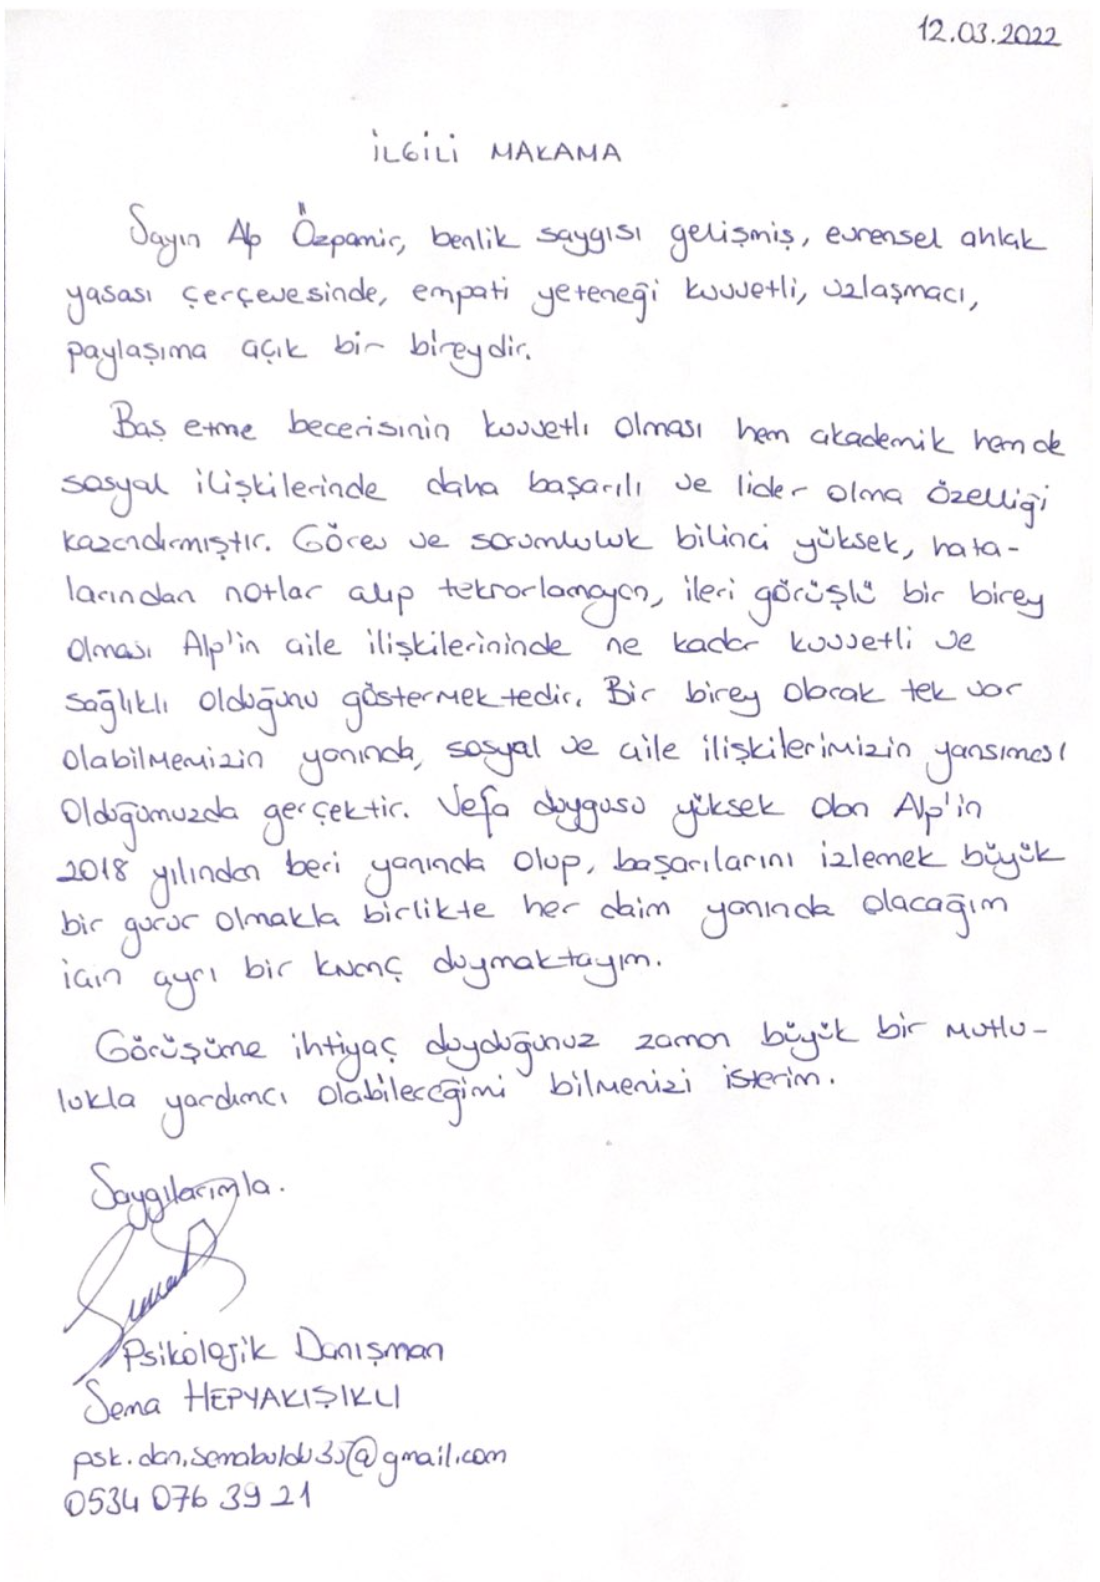 12.03.2022
İLGİLİ MAKAMA
Sayın Alp Özpamir, benlik saygısı gelişmiş, evrensel ahlak
yasası çerçevesinde, empati yeteneği kuvvetli, uzlaşmacı,
paylaşıma açık bir bireydir.
Baş etme becerisinin kuvvetli olması hem akademik hem de
sosyal ilişkilerinde daha başarılı ve lider olma özelliği
kazandırmıştır. Görev ve sorumluluk bilinci yüksek, hata-
larından notlar alıp tekrarlamayan, ileri görüşlü bir birey
olması Alp'in aile ilişkilerininde ne kadar kuvvetli ve
sağlıklı olduğunu göstermektedir. Bir birey olarak tek var
olabilmemizin yanında, sosyal ve aile ilişkilerimizin yansıması
olduğumuzda gerçektir. Vefa duygusu yüksek olan Alp'in
2018 yılından beri yanında olup, başarılarını izlemek büyük
bir gurur olmakla birlikte her daim yanında olacağım
için ayrı bir kıvanç duymaktayım.
Görüşüme ihtiyaç duyduğunuz zaman büyük bir mutlu-
lukla yardımcı olabileceğimi bilmenizi isterim.
Saygılarımla.
Psikolojik Danışman
Sema HEPYAKIŞIKLI
0534 076 39 21